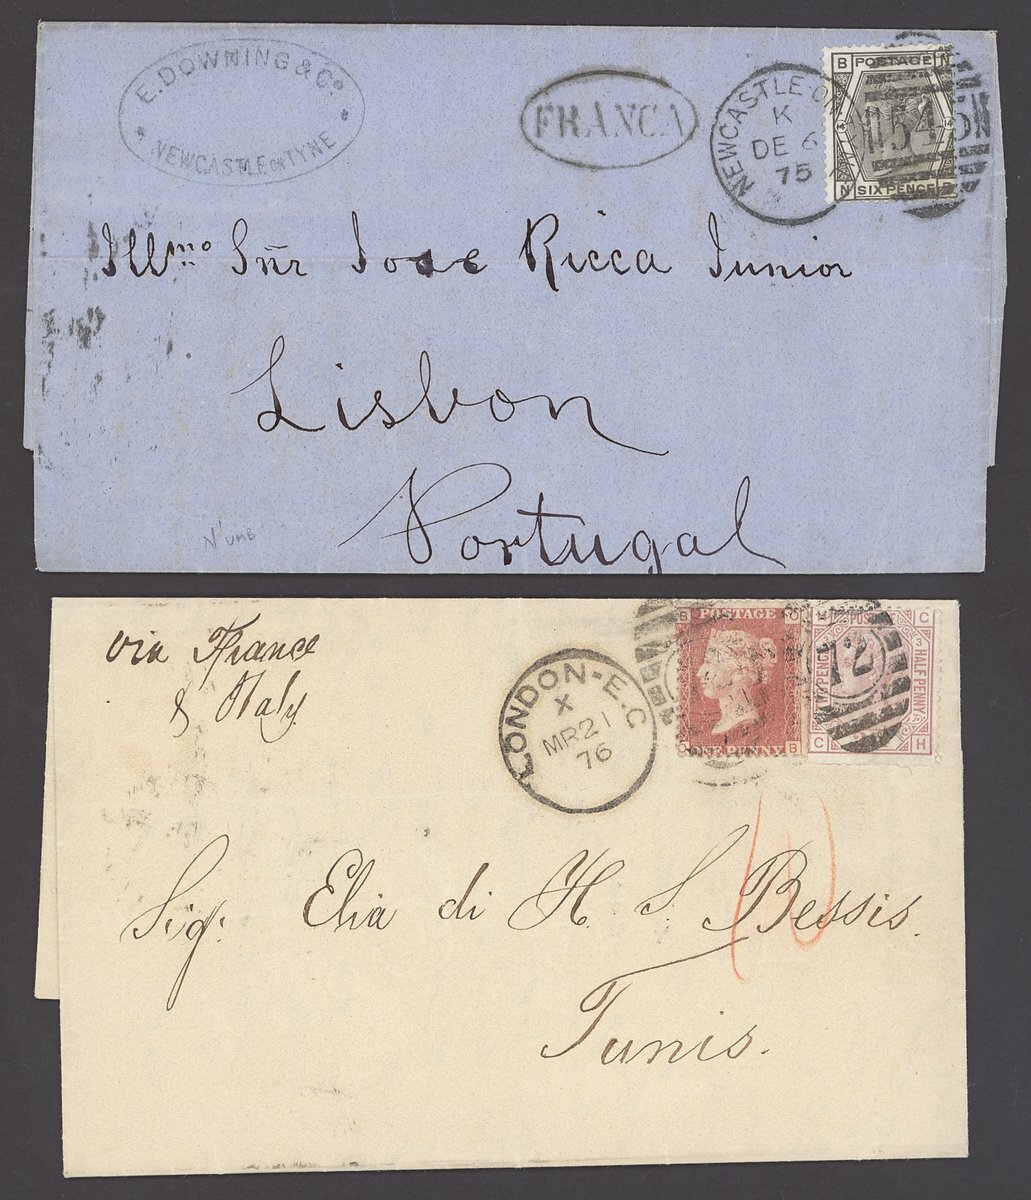 E. DOWNING & Co.
NEWCASTLE ON TYNE
FRANCA
NEWCASTLE ON
K
DE 6
75
545
B POSTAGE N
14 14
N SIX PENCE B
Illmo Snr Jose Ricca Junior
Lisbon
Portugal
N'UMB
via France
& Italy
LONDON-E.C
X
MR 21
76
B POSTAGE O
O ONE PENNY B
72
POSTAGE C
PENCE
HALF PENNY
C H
10
Sigr. Elia di H. S. Bessis.
Tunis.